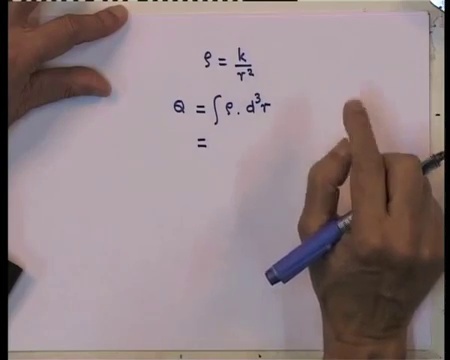 ρ = k/r²
Q = ∫ ρ . d³r
=